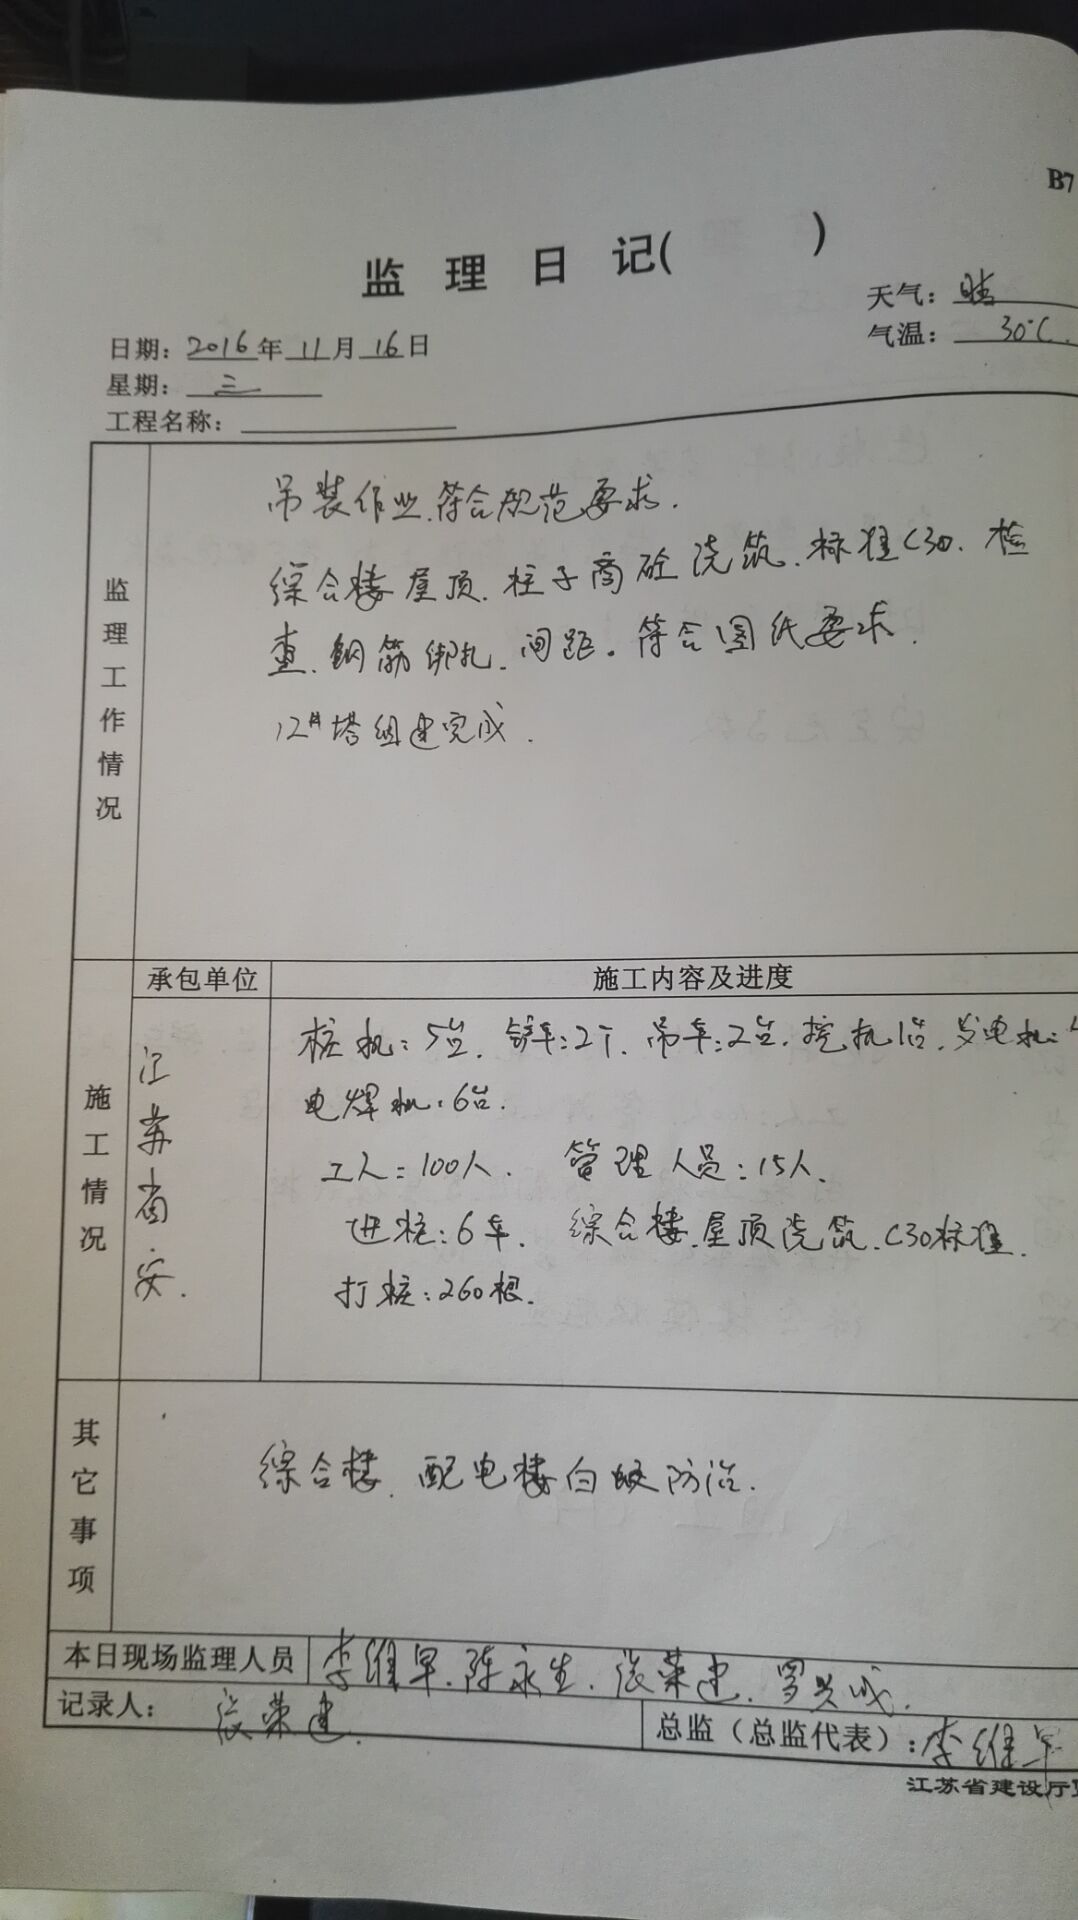 B7
监理日记( )
天气：晴
气温：30℃.
日期：2016年11月16日
星期：三
工程名称：
监理工作情况
吊装作业.符合规范要求.
综合楼屋顶.柱子商砼浇筑.标准C30.检
查.钢筋绑扎.间距.符合图纸要求.
12#塔组建完成.
施工情况
承包单位
施工内容及进度
江苏省安.
桩机：5台.铲车：2个.吊车：2台.挖机1台.发电机：
电焊机：6台.
工人：100人. 管理人员：15人.
进桩：6车. 综合楼.屋顶浇筑.C30标准.
打桩：260根.
其它事项
综合楼.配电楼白蚁防治.
本日现场监理人员 李维早.陈永生.张荣建.罗兴成.
记录人：张荣建.
总监（总监代表）：李维早
江苏省建设厅